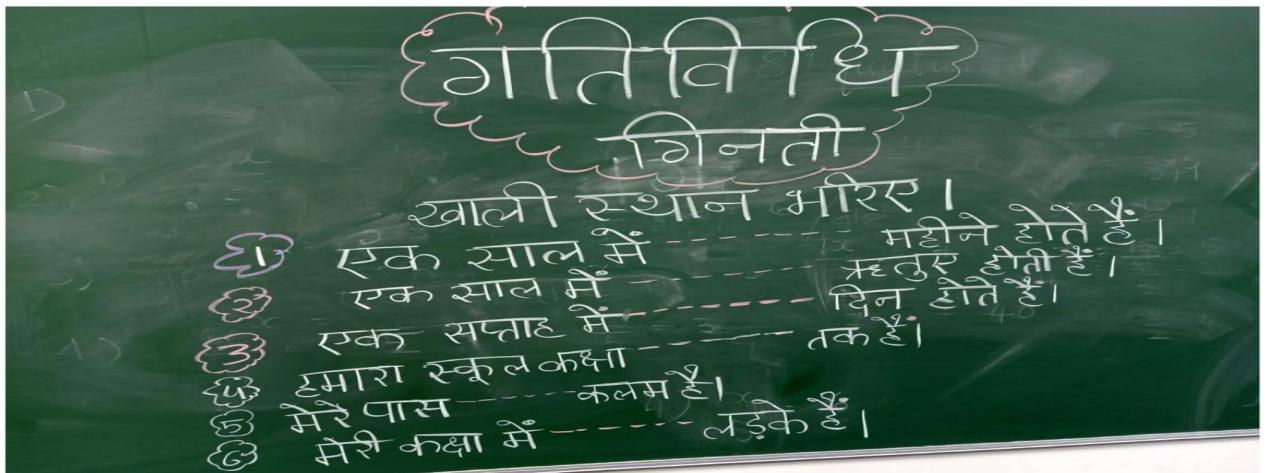 गतिविधि
गिनती
खाली स्थान भरिए।
1 एक साल में ------- महीने होते हैं।
2 एक साल में ------- ऋतुए होती हैं।
3 एक सप्ताह में ------- दिन होते हैं।
4 हमारा स्कूल कक्षा ------- तक हैं।
5 मेरे पास ------- कलम है।
6 मेरी कक्षा में ------- लड़के हैं।